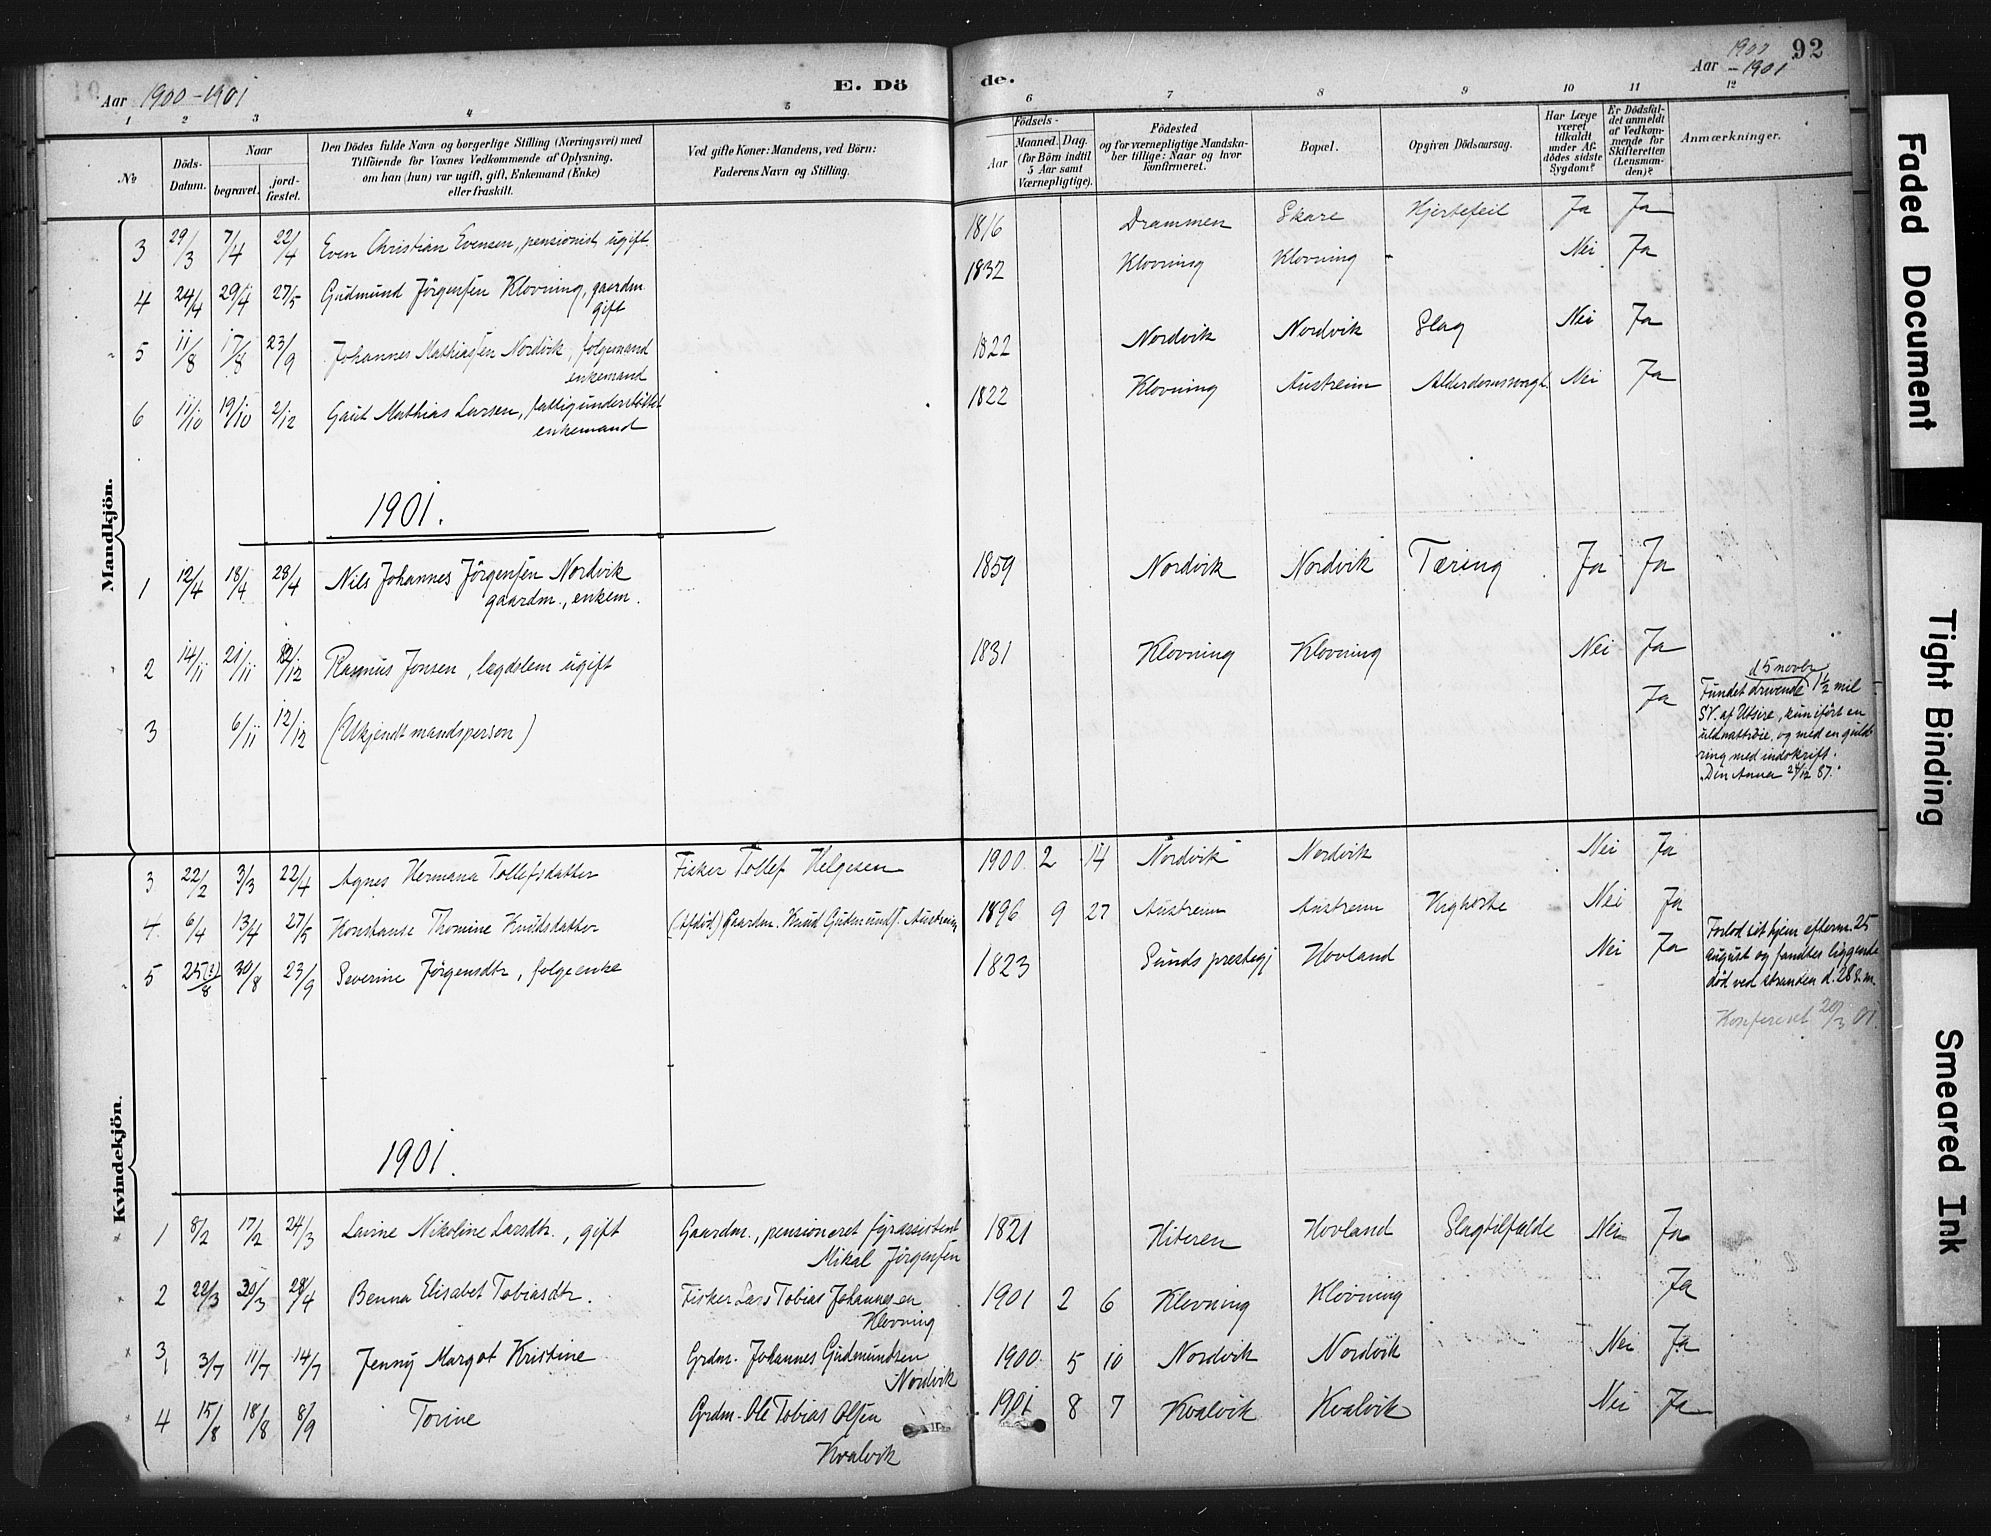 Aar 1900-1901 E. Dö de. Aar 1900-1901 92
1 2 3 4 5 6 7 8 9 10 11 12
№ Döds-Datum. Naar begravet. jord-fæstet. Den Dödes fulde Navn og borgerlige Stilling (Næringsvei) med Tilföiende for Voxnes Vedkommende af Oplysning, om han (hun) var ugift, gift, Enkemand (Enke) eller fraskilt. Ved gifte Koner: Mandens, ved Börn: Faderens Navn og Stilling. Födsels- Aar Maaned. Dag. (for Börn indtil 5 Aar samt Værnepligtige). Födested og for værnepligtige Mandska-ber tillige: Naar og hvor konfirmeret. Bopæl. Opgiven Dödsaarsag. Har Læge været tilkaldt under Af-dödes sidste Sygdom? Er Dödsfal-det anmeldt af Vedkom-mende for Skifteretten (Lensman-den)? Anmærkninger.
Mandkjön.
3 29/3 7/4 22/4 Even Christian Evensen, pensionist, ugift. 1816 Drammen Skare Hjertefeil Ja Ja
4 24/4 29/4 27/5 Gudmund Jörgensen Klovning, gaardm 1832 Klovning Klovning - Nei Ja
gift
5 11/8 17/8 23/9 Johannes Mathiassen Nordvik, folgemand 1822 Nordvik Nordvik Slag Nei Ja
enkemand
6 11/10 19/10 2/12 Gaut Mathias Larsen, fattigunderstöttet 1822 Klovning Austreim Alderdomssvagh. Nei Ja
enkemand
1901.
1 12/4 18/4 28/4 Nils Johannes Jörgensen Nordvik 1859 Nordvik Nordvik Tæring Ja Ja
gaardm., enkem.
2 14/11 21/11 12/12 Rasmus Jonsen, lægdslem ugift 1831 Klovning Klovning Nei Ja
3 6/11 12/12 (Ukjendt mandsperson) Ja
d 5 novbr
Fundet drivende 1½ mil
SV. af Utsire, kun iført en
uldnattrøie, og med en guld-
ring med indskrift:
"Din Anna 24/12 87."
Kvindekjön.
3 22/2 3/3 22/4 Agnes Hermana Tollefsdatter Fisker Tollef Helgesen 1900 2 14 Nordvik Nordvik Nei Ja
4 6/4 13/4 27/5 Konstanse Thomine Knutsdatter (Afdöd) Gaardm. Knud Gudmunds. Austreim 1896 9 27 Austreim Austreim Kighoste Nei Ja
5 25(?)/8 30/8 23/9 Severine Jörgensdtr, folgeenke 1823 Sunds prestegj Hovland Nei Ja
Forlod sit hjem efterm. 25
august og fandtes liggende
död ved stranden d. 28 s.m.
Konfereret 20/3 01.
1901.
1 8/2 17/2 24/3 Lavine Nikoline Larsdtr., gift Gaardm., pensioneret fyrassistent 1821 Hiteren Hovland Slagtilfælde Nei Ja
Mikal Jörgensen
2 22/3 30/3 28/4 Benna Elisabet Tobiasdtr. Fisker Lars Tobias Johannesen 1901 2 6 Klovning Klovning Ja
Klovning
3 3/7 11/7 14/7 Jenny Margot Kristine Grdm. Johannes Gudmundsen 1900 5 10 Nordvik Nordvik Nei Ja
Nordvik
4 15/8 18/8 8/9 Torine Grdm. Ole Tobias Olsen 1901 8 7 Kvalvik Kvalvik Nei Ja
Kvalvik
Faded Document
Tight Binding
Smeared Ink